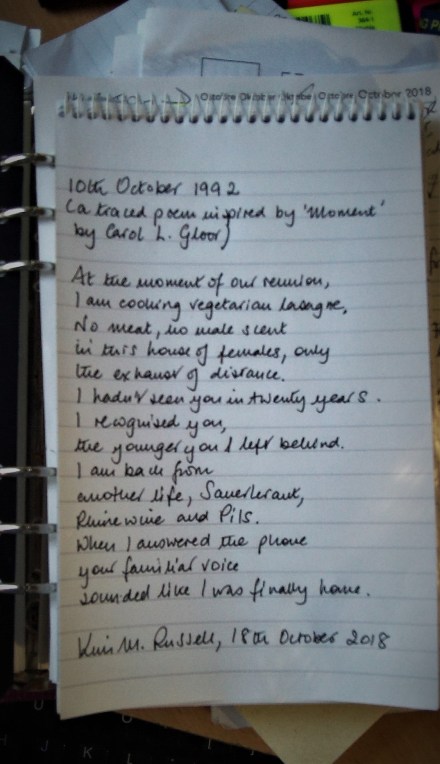 October 2018
10th October 1992
(a traced poem inspired by 'Moment'
by Carol L. Gloor)
At the moment of our reunion,
I am cooking vegetarian lasagne,
No meat, no male scent
in this house of females, only
the exhaust of distance.
I hadn't seen you in twenty years.
I recognised you,
the younger you I left behind.
I am back from
another life, Sauerkraut,
Rhine wine and Pils.
When I answered the phone
your familiar voice
sounded like I was finally home.
Kim M. Russell, 18th October 2018
U
J K L